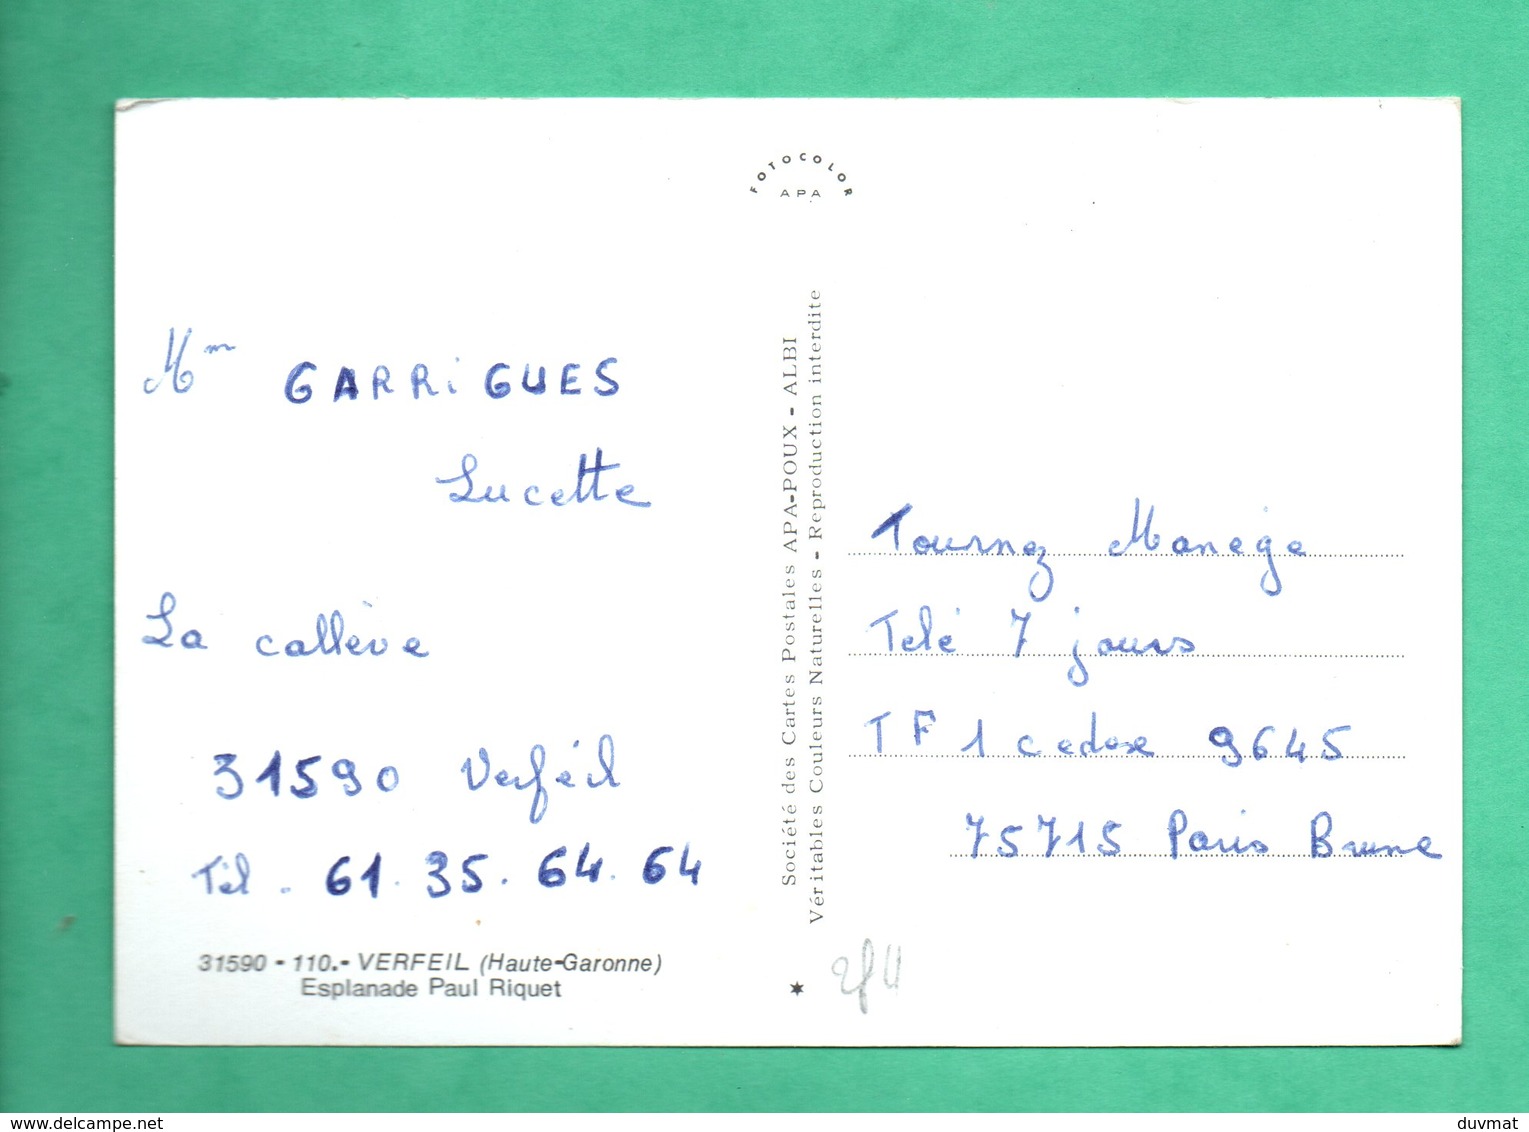 FOTOCOLOR
APA
Mm GARRiGUES
Lucette
La callève
31590 Verfeil
Tél. 61. 35. 64. 64
31590 - 110.- VERFEIL (Haute-Garonne)
Esplanade Paul Riquet
Société des Cartes Postales APA-POUX - ALBI
Véritables Couleurs Naturelles - Reproduction interdite
Tournez Manège
Télé 7 jours
TF 1 cedex 9645
75715 Paris Brune
www.delcampe.net
duvmat